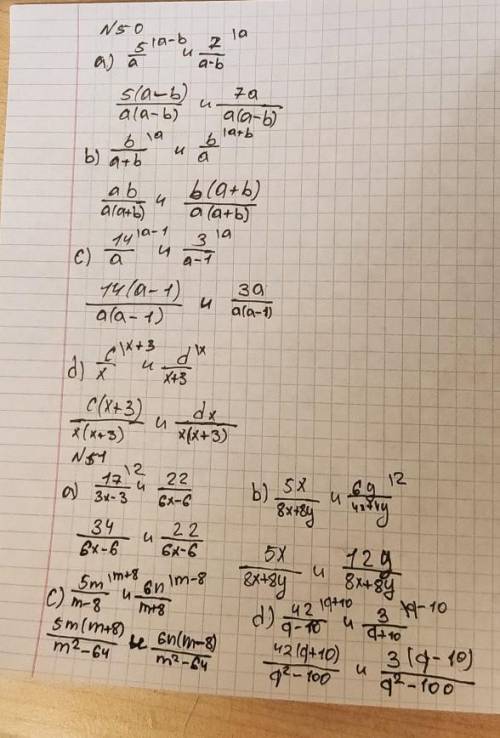 N50
a) 5/a |a-b и 7/(a-b) |a
5(a-b)/a(a-b) и 7a/a(a-b)
b) b/(a+b) \a и b/a |a+b
ab/a(a+b) и b(a+b)/a(a+b)
c) 14/a |a-1 и 3/(a-1) |a
14(a-1)/a(a-1) и 3a/a(a-1)
d) c/x \x+3 и d/(x+3) \x
c(x+3)/x(x+3) и dx/x(x+3)
N51
a) 17/(3x-3) \2 и 22/(6x-6)
34/(6x-6) и 22/(6x-6)
b) 5x/(8x+8y) и 6y/(4x+4y) |2
5x/(8x+8y) и 12y/(8x+8y)
c) 5m/(m-8) |m+8 и 6n/(m+8) |m-8
5m(m+8)/(m²-64) и 6n(m-8)/(m²-64)
d) 42/(q-10) |q+10 и 3/(q+10) \q-10
42(q+10)/(q²-100) и 3(q-10)/(q²-100)